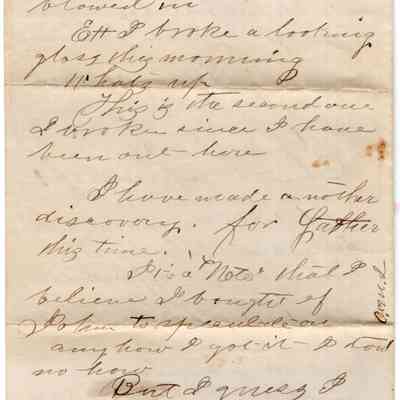 blowed in
Ett I broke a looking
glass this morning
Whats up
This is the second one
I broke since I have
been out here
I have made another
discovery. for Father
this time.
a "Note" that I
believe I bought of
John to speculate on
any how I got it I dont
no how
But I guess I